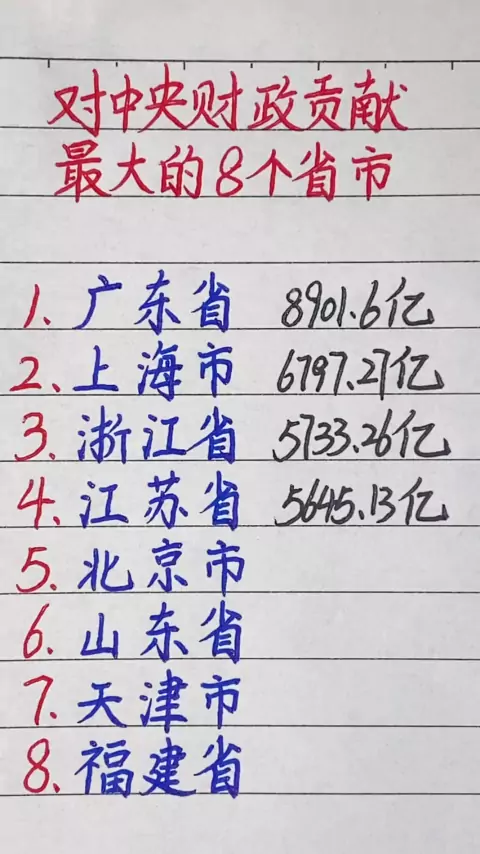 对中央财政贡献
最大的8个省市
1. 广东省 8901.6亿
2. 上海市 6797.27亿
3. 浙江省 5733.26亿
4. 江苏省 5645.13亿
5. 北京市
6. 山东省
7. 天津市
8. 福建省